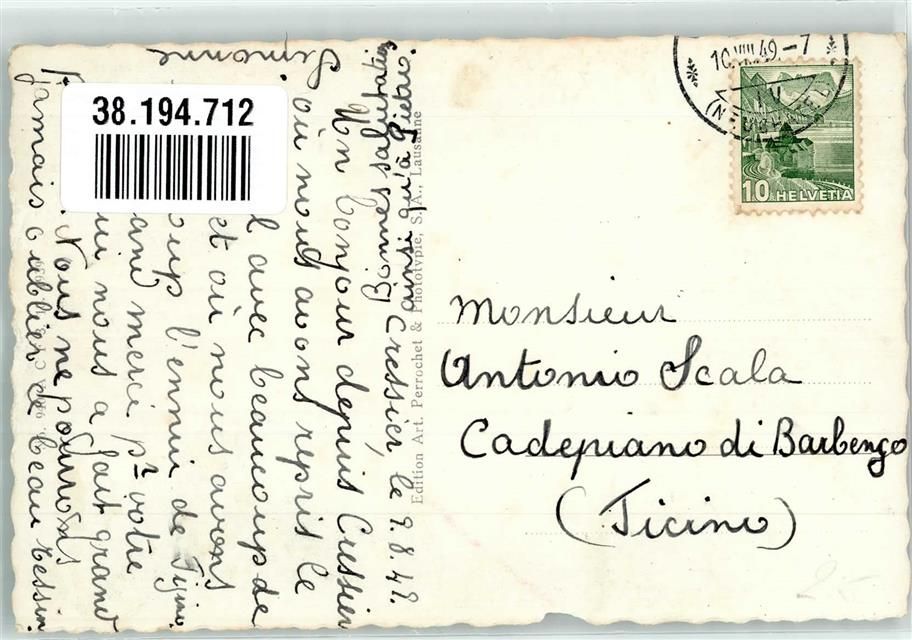 38.194.712
10.VIII.49.-7
10 HELVETIA
Monsieur
Antonio Scala
Cadepiano di Barbengo
(Ticino)
Edition Art. Perrochet & Phototypie, S.A., Lausanne
Cressier le 9.8.49.
Un bonjour depuis Cressier
où nous avons repris le
avec beaucoup de
et où nous avons
l'ennui de
merci pr votre
nous a fait grand
Nous ne pourrons
jamais oublier le beau Tessin
Bonnes salutations
ainsi qu'à Piétro.
Simonne